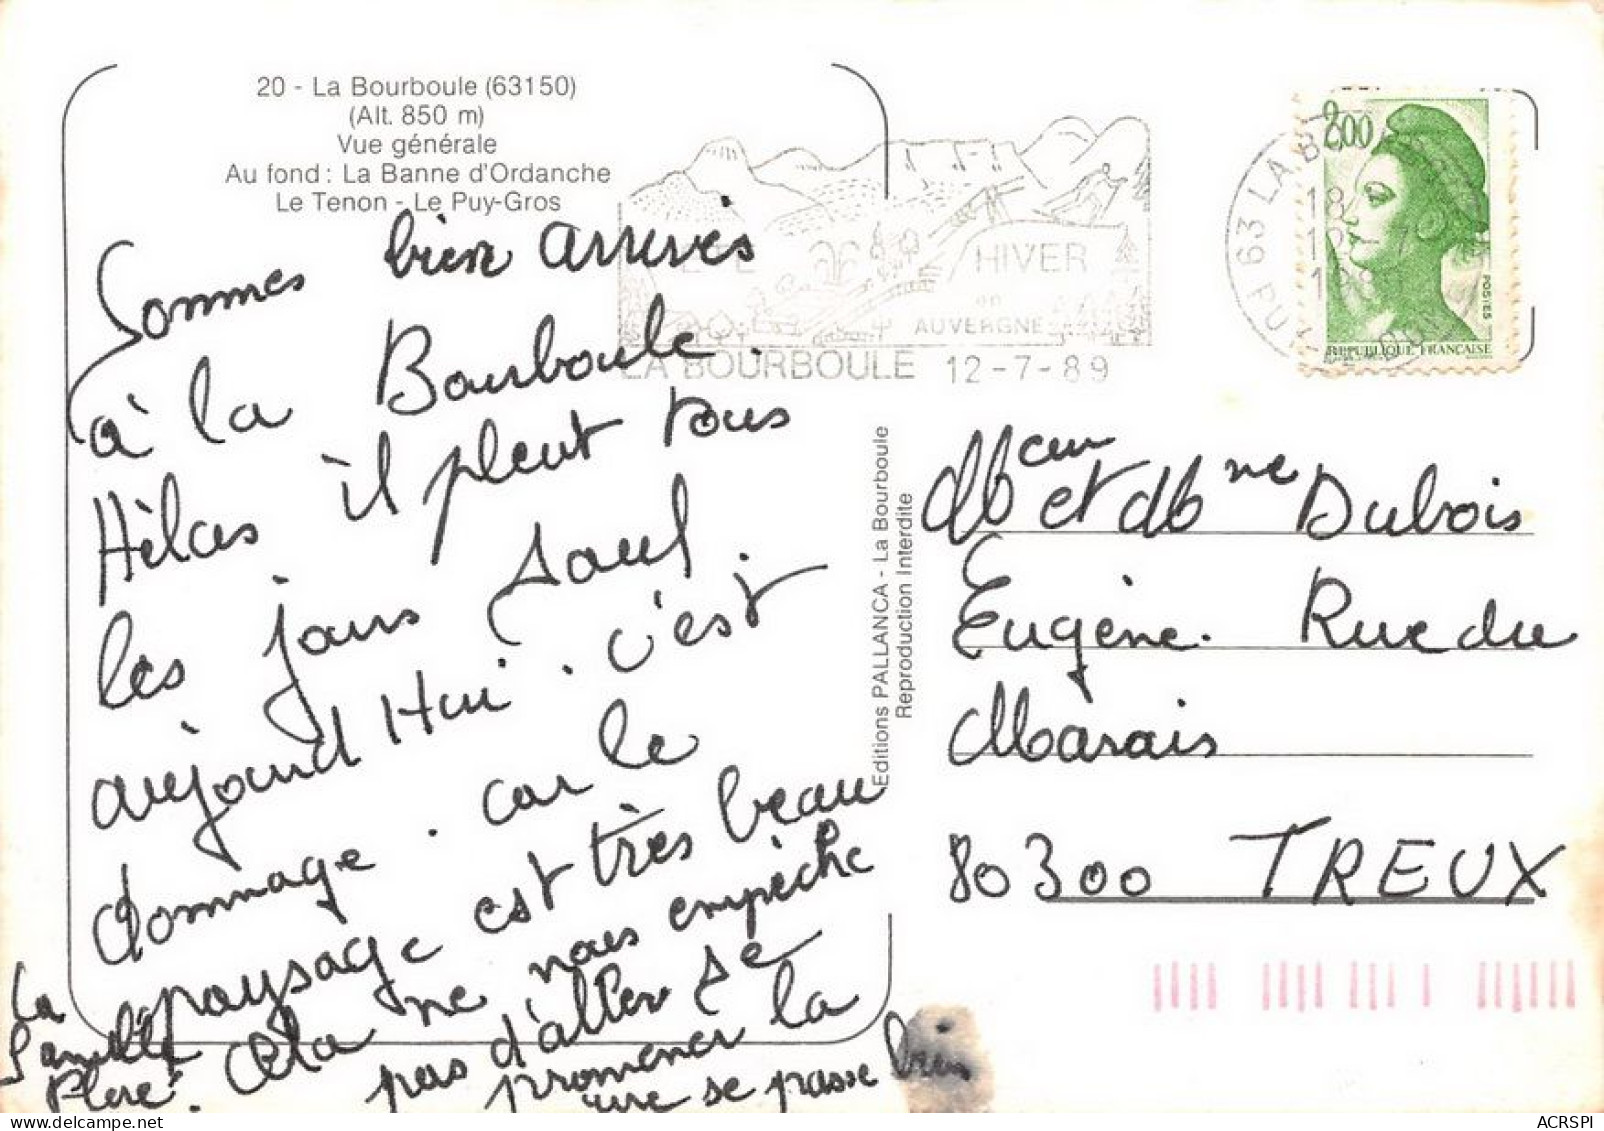 20 - La Bourboule (63150)
(Alt. 850 m)
Vue générale
Au fond : La Banne d'Ordanche
Le Tenon - Le Puy-Gros
Sommes bien arrivés
à la Bourboule.
Hélas il pleut tous
les jours sauf
aujourd Hui. c'est
dommage. car le
paysage est très beau
Cela ne nous empèche
pas d'aller se
promener la
se passe bien
La
Famille
ETE HIVER
en
AUVERGNE
LA BOURBOULE 12-7-89
63 LA B
18
12-7
2.00
POSTES
REPUBLIQUE FRANÇAISE
Editions PALLANCA - La Bourboule
Reproduction Interdite
Mr et Mme Dubois
Eugène. Rue du
Marais
80300 TREUX
ACRSPI